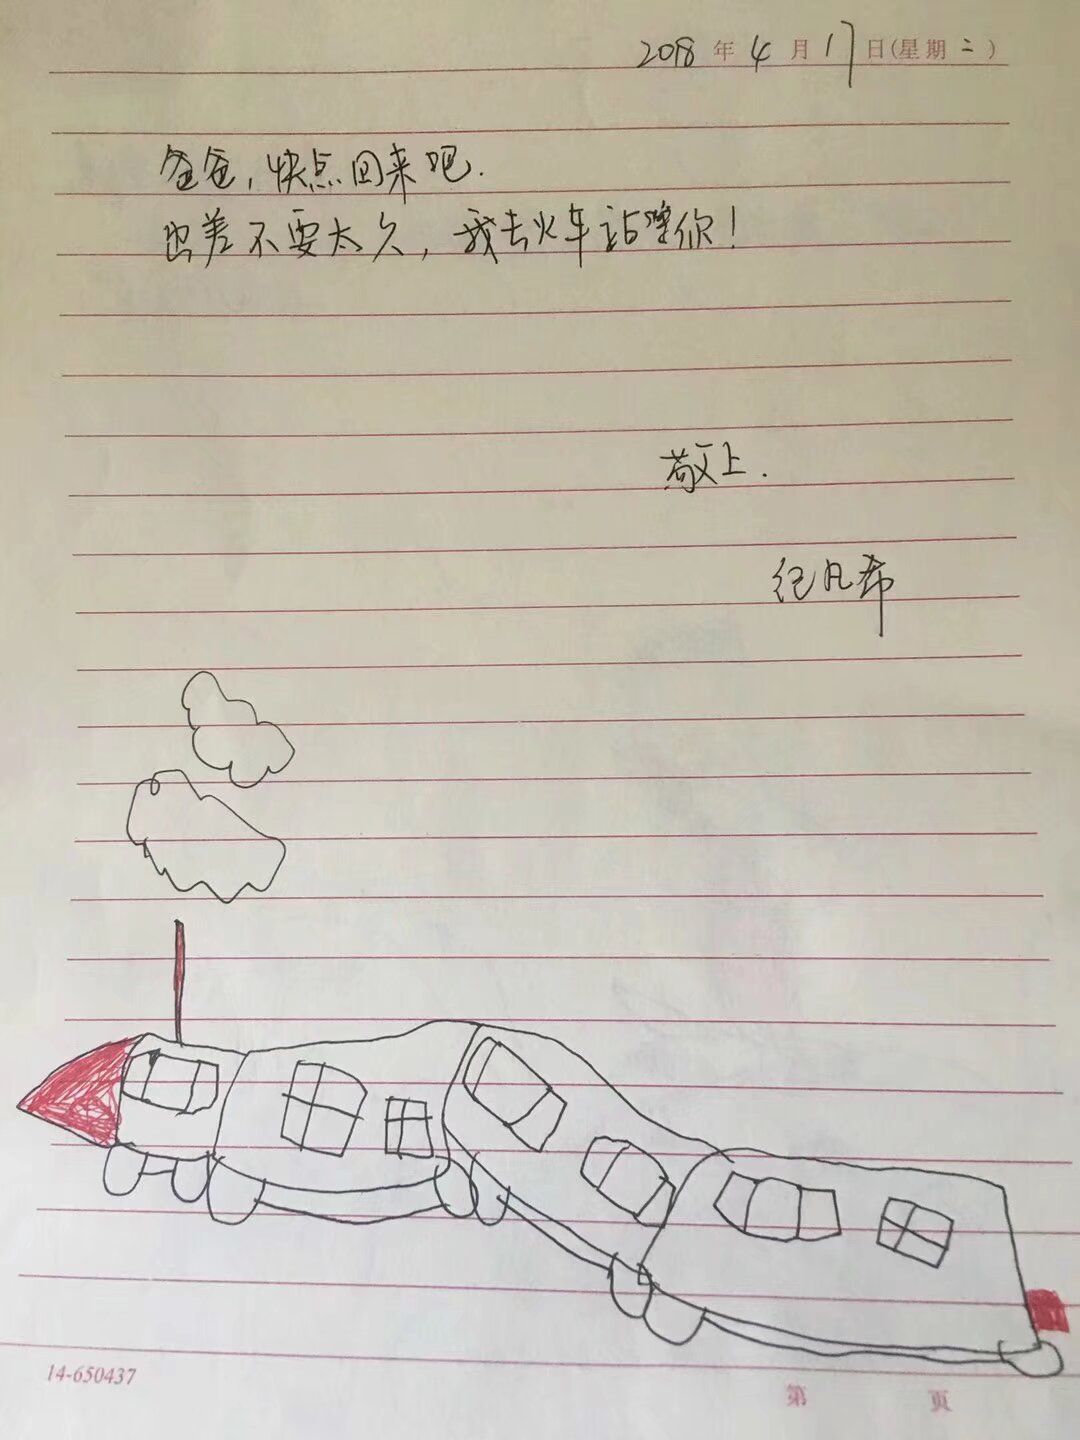 2018 年 4 月 17 日(星期二)
爸爸,快点回来吧.
出差不要太久,我去火车站等你!
敬上.
纪凡希
14-650437
第 页